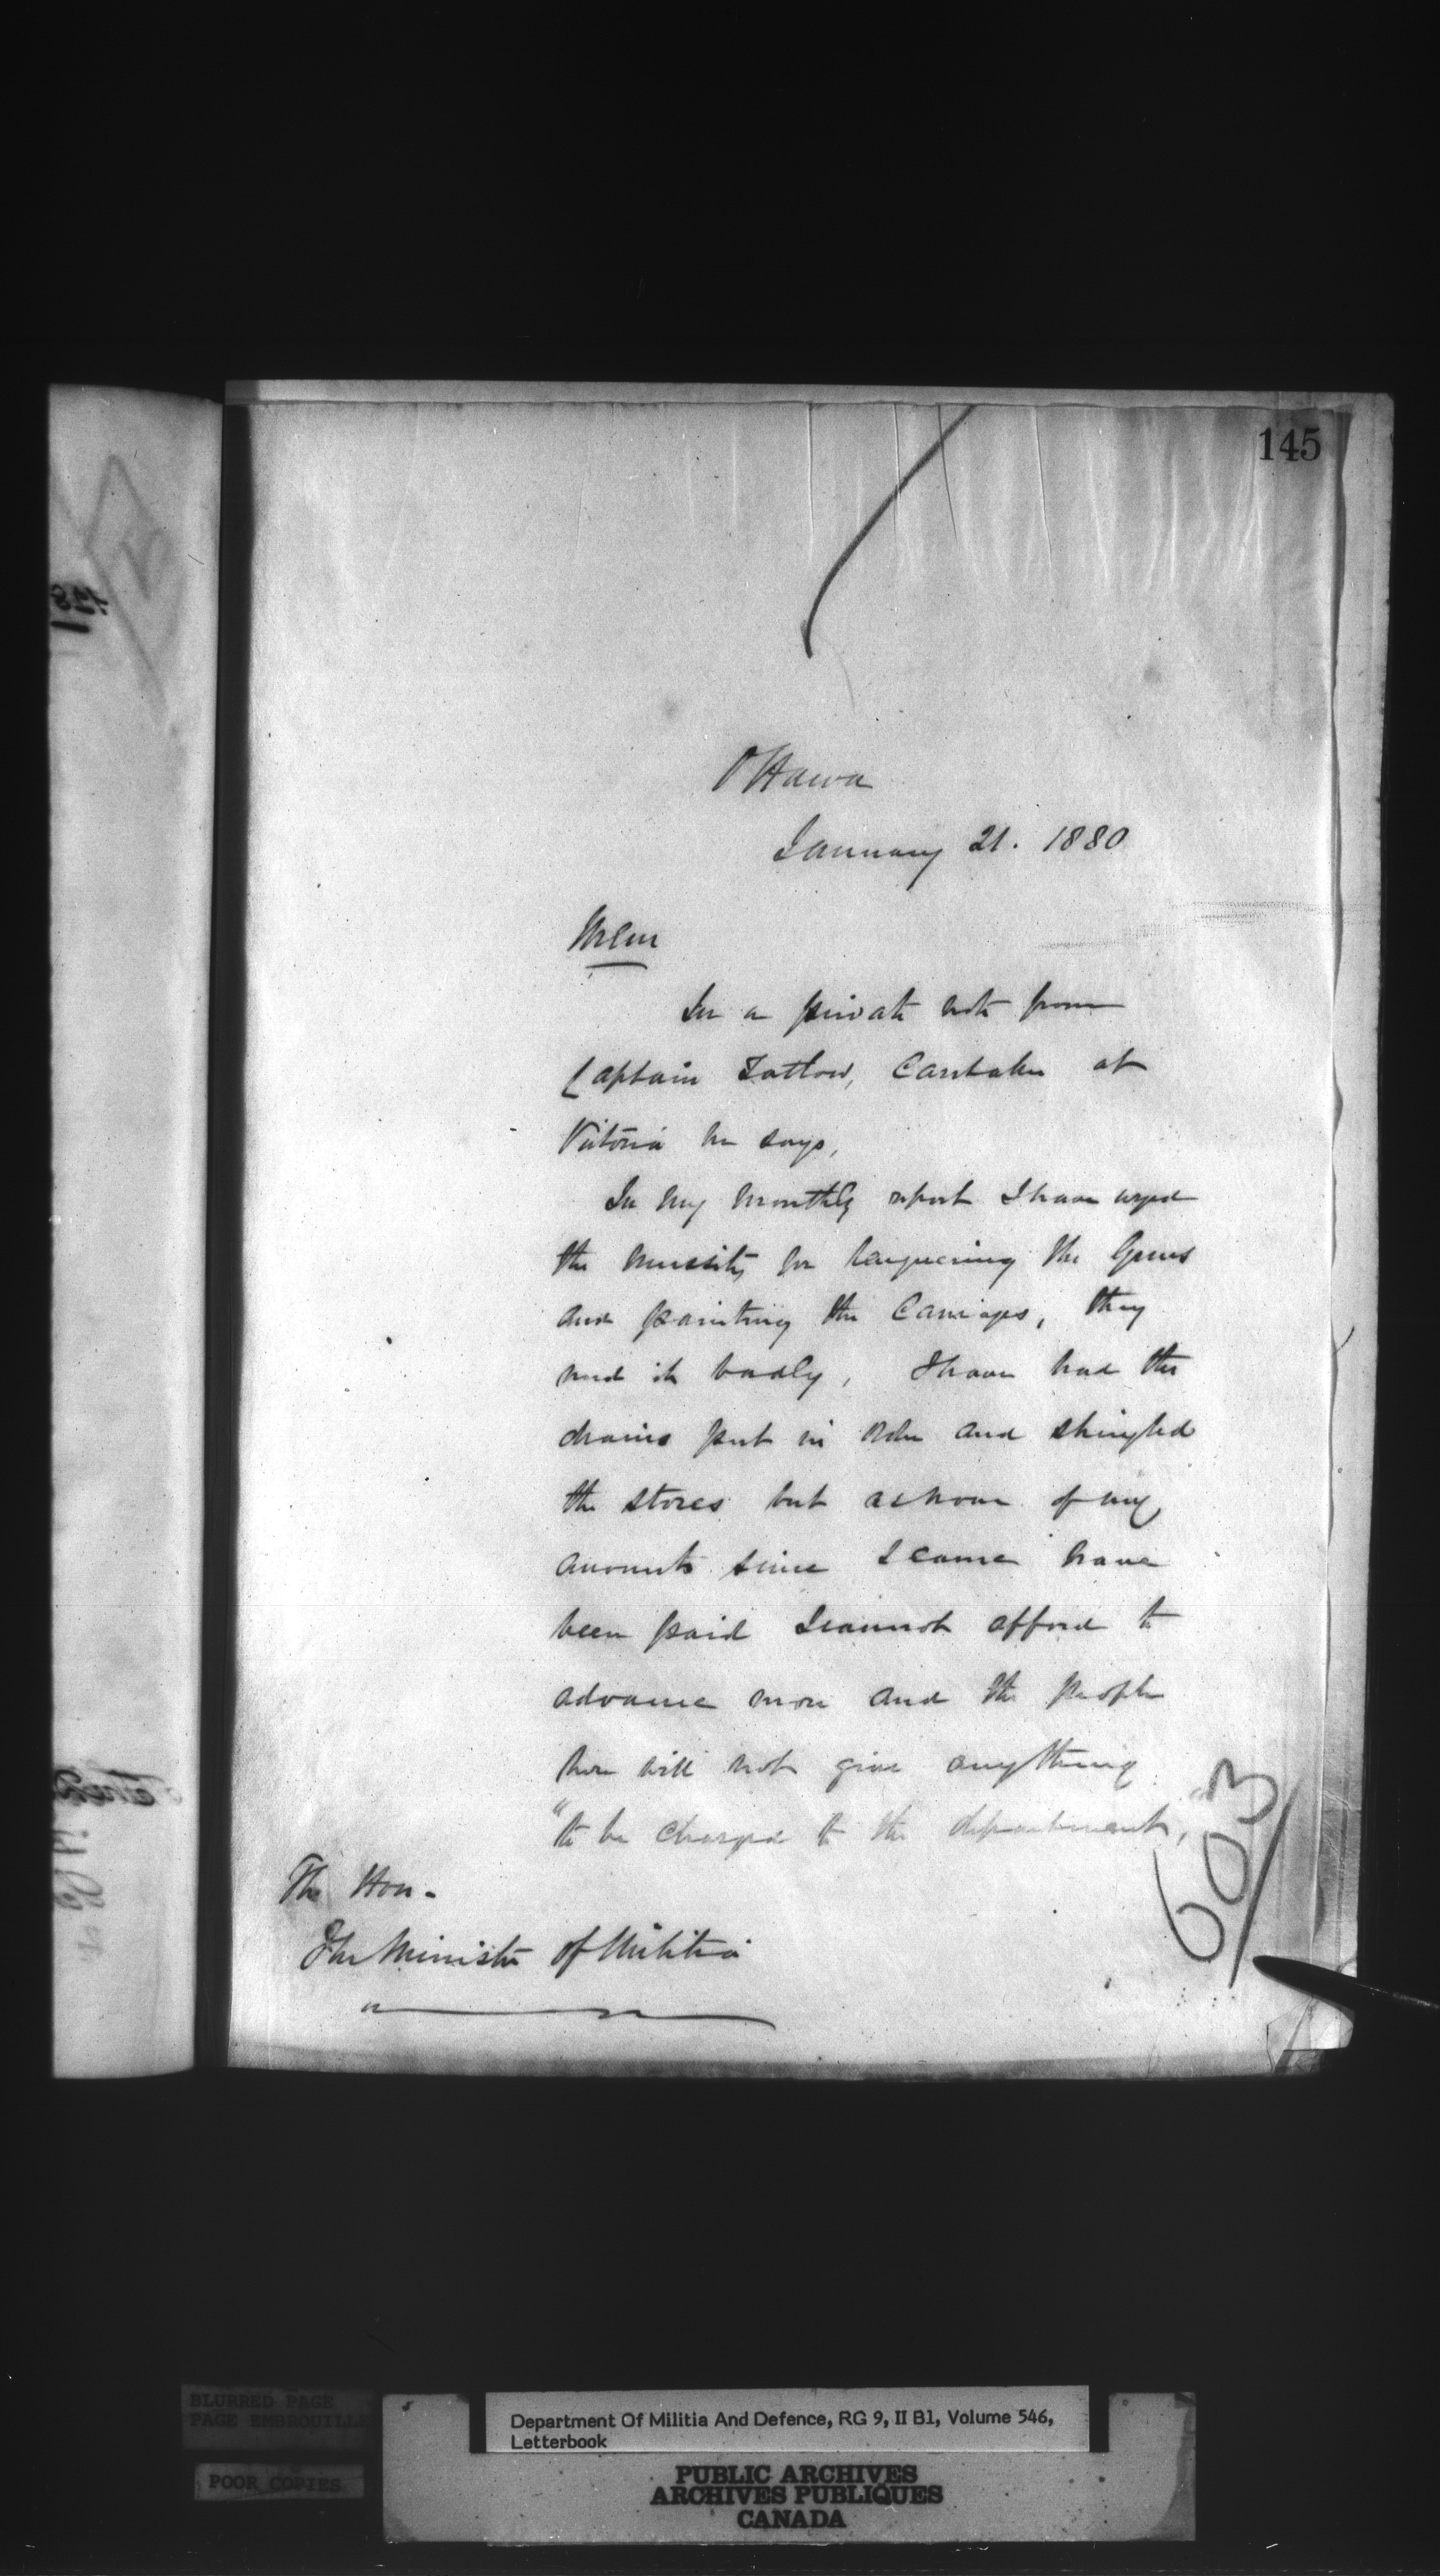 145
Ottawa
January 21. 1880
Mem
In a private note from
Captain Tatlow, Caretaker at
Victoria he says,
In my monthly report I have urged
the necessity for lacquering the Guns
and painting the Carriages, they
need it badly, I have had the
drains put in order and shingled
the stores but as none of my
accounts since I came have
been paid I cannot afford to
advance more and the people
here will not give anything
"to be charged to the department,"
The Hon.
The Minister of Militia
603
BLURRED PAGE
PAGE EMBROUILLE
POOR COPIES
Department Of Militia And Defence, RG 9, II B1, Volume 546,
Letterbook
PUBLIC ARCHIVES
ARCHIVES PUBLIQUES
CANADA